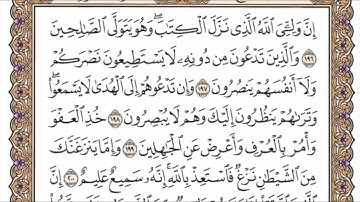 إِنَّ وَلِـِّۧيَ ٱللَّهُ ٱلَّذِي نَزَّلَ ٱلۡكِتَٰبَۖ وَهُوَ يَتَوَلَّى ٱلصَّٰلِحِينَ
١٩٦ وَٱلَّذِينَ تَدۡعُونَ مِن دُونِهِۦ لَا يَسۡتَطِيعُونَ نَصۡرَكُمۡ
وَلَآ أَنفُسَهُمۡ يَنصُرُونَ ١٩٧ وَإِن تَدۡعُوهُمۡ إِلَى ٱلۡهُدَىٰ لَا يَسۡمَعُواْۖ
وَتَرَىٰهُمۡ يَنظُرُونَ إِلَيۡكَ وَهُمۡ لَا يُبۡصِرُونَ ١٩٨ خُذِ ٱلۡعَفۡوَ
وَأۡمُرۡ بِٱلۡعُرۡفِ وَأَعۡرِضۡ عَنِ ٱلۡجَٰهِلِينَ ١٩٩ وَإِمَّا يَنزَغَنَّكَ
مِنَ ٱلشَّيۡطَٰنِ نَزۡغٞ فَٱسۡتَعِذۡ بِٱللَّهِۚ إِنَّهُۥ سَمِيعٌ عَلِيمٌ ٢٠٠ إِنَّ